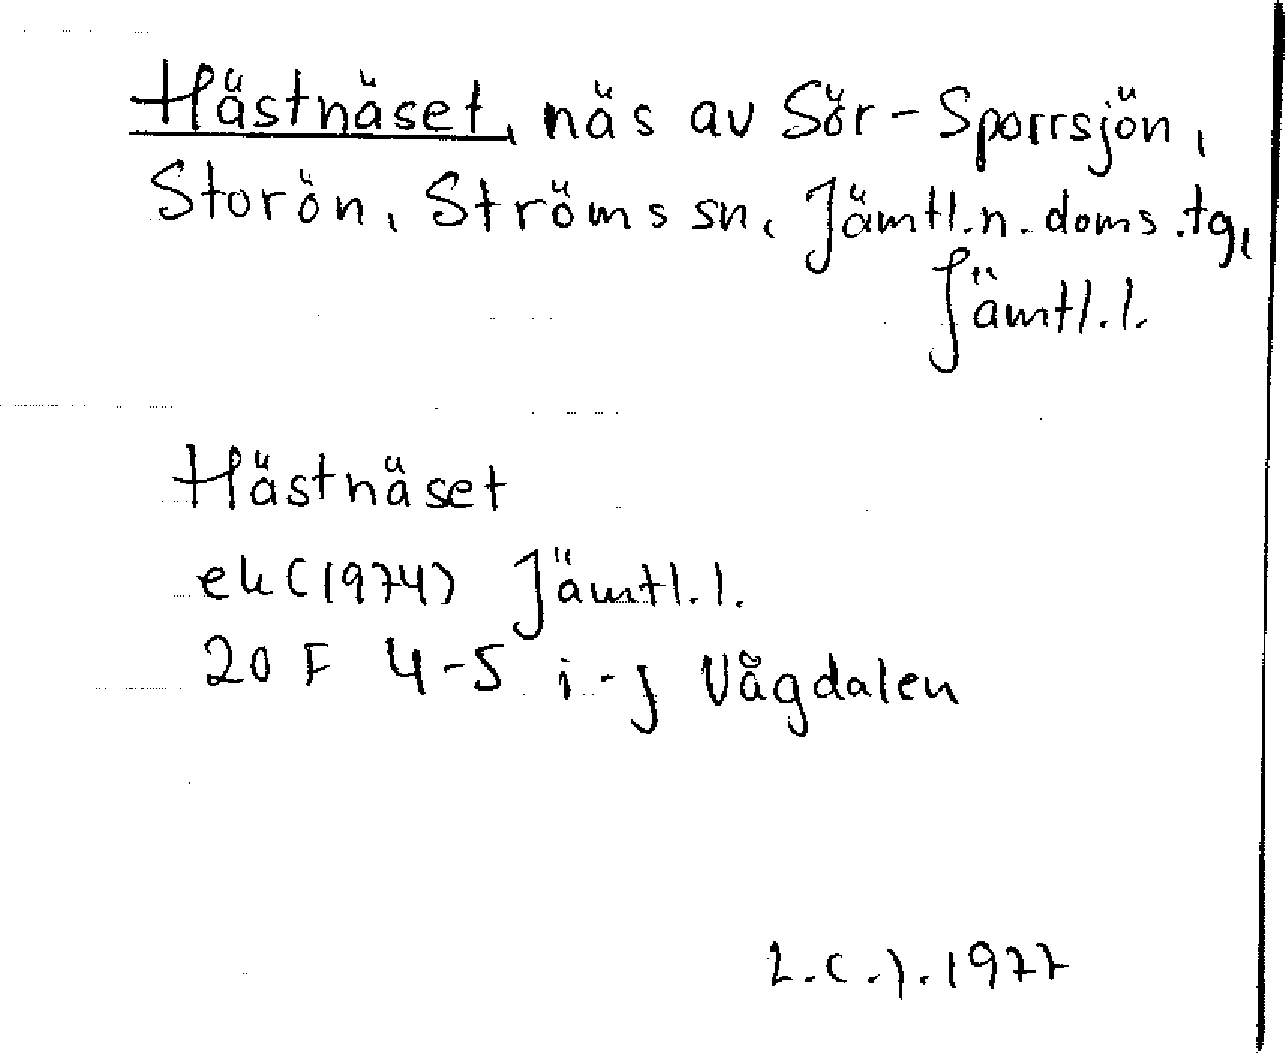 Hästnäset, näs av Sör-Sporrsjön,
Storön, Ströms sn, Jämtl.n. doms.tg,
Jämtl.l.
Hästnäset
ek (1974) Jämtl.l.
20 F 4-5 i-j Vågdalen
1977